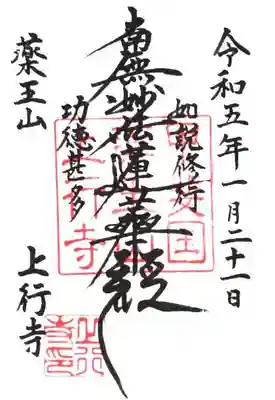 令和五年一月二十一日
如説修行
南無妙法蓮華経
功徳甚多
薬王山
上行寺
上行寺印